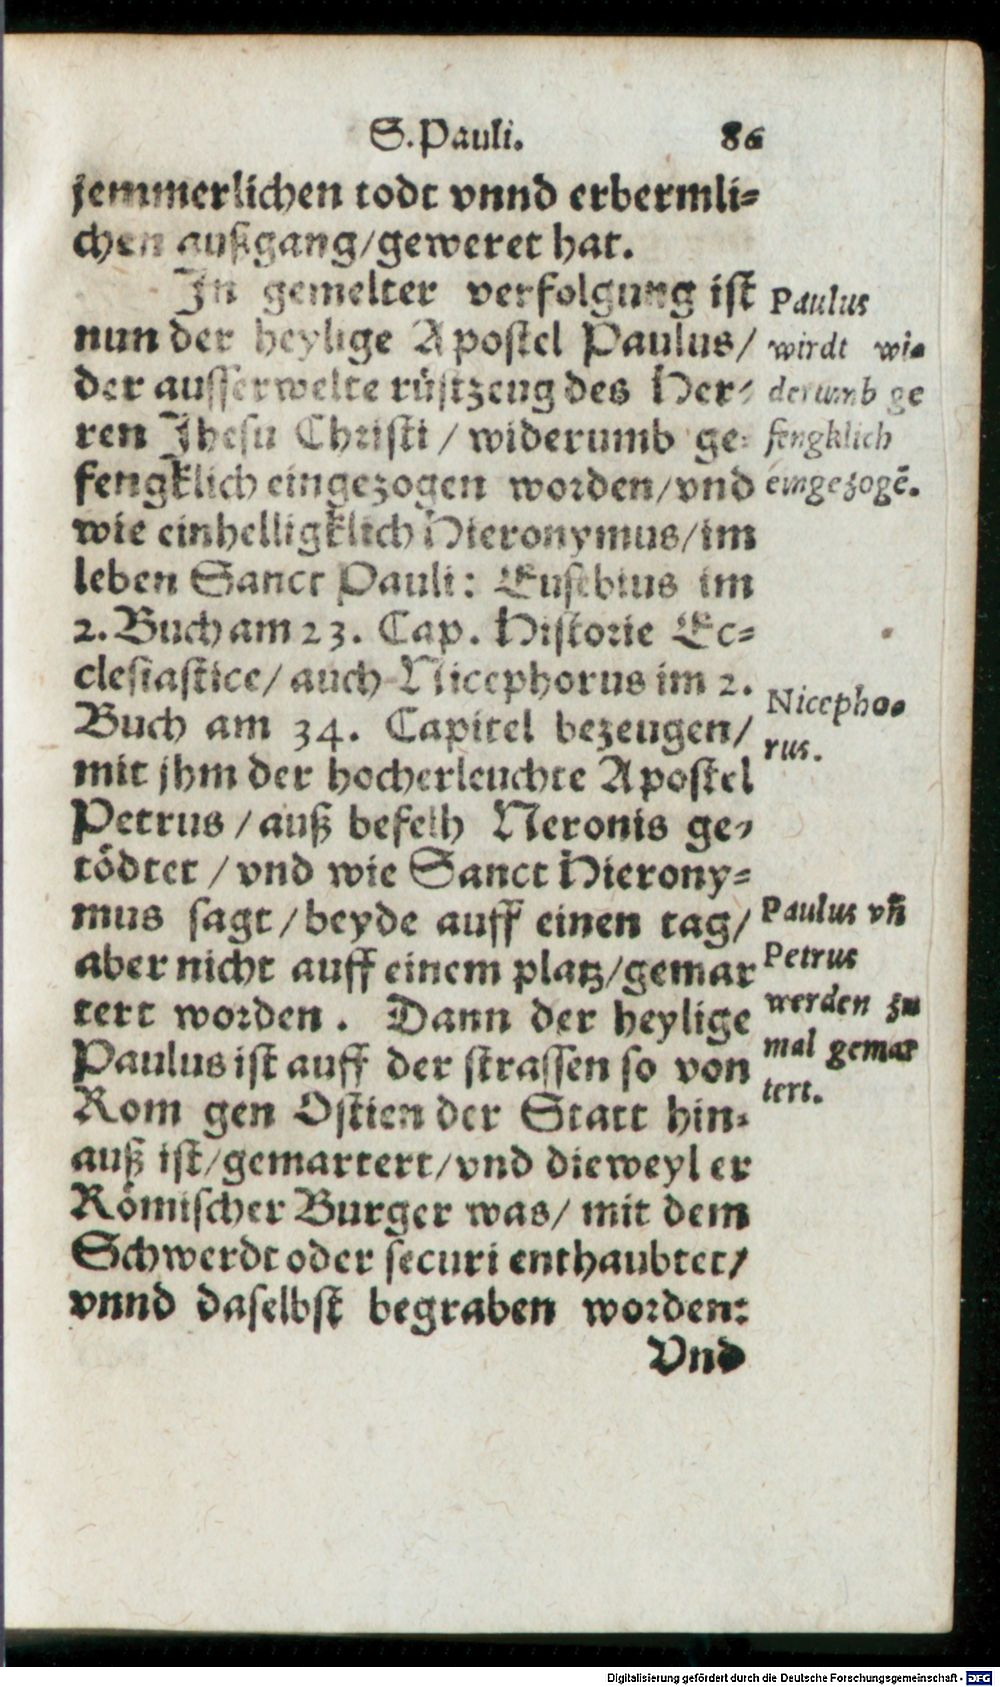 S. Pauli. 86
jemmerlichen todt vnnd erbermli=
chen außgang/geweret hat.
In gemelter verfolgung ist
nun der heylige Apostel Paulus/
der ausserwelte rüstzeug des Her=
ren Jhesu Christi / widerumb ge=
fengklich eingezogen worden/vnd
wie einhelligklich Hieronymus/im
leben Sanct Pauli: Eusebius im
2. Buch am 23. Cap. Historie Ec=
clesiastice/ auch Nicephorus im 2.
Buch am 34. Capitel bezeugen/
mit jhm der hocherleuchte Apostel
Petrus / auß befelh Neronis ge=
tödtet / vnd wie Sanct Hierony=
mus sagt / beyde auff einen tag/
aber nicht auff einem platz/gemar
tert worden. Dann der heylige
Paulus ist auff der strassen so von
Rom gen Ostien der Statt hin=
auß ist/gemartert/vnd dieweyl er
Römischer Burger was/ mit dem
Schwerdt oder securi enthaubtet/
vnnd daselbst begraben worden:
Vnd
Paulus
wirdt wi=
derumb ge
fengklich
eingezogē.
Nicepho=
rus.
Paulus vñ
Petrus
werden zu
mal gemar
tert.
Digitalisierung gefördert durch die Deutsche Forschungsgemeinschaft - DFG